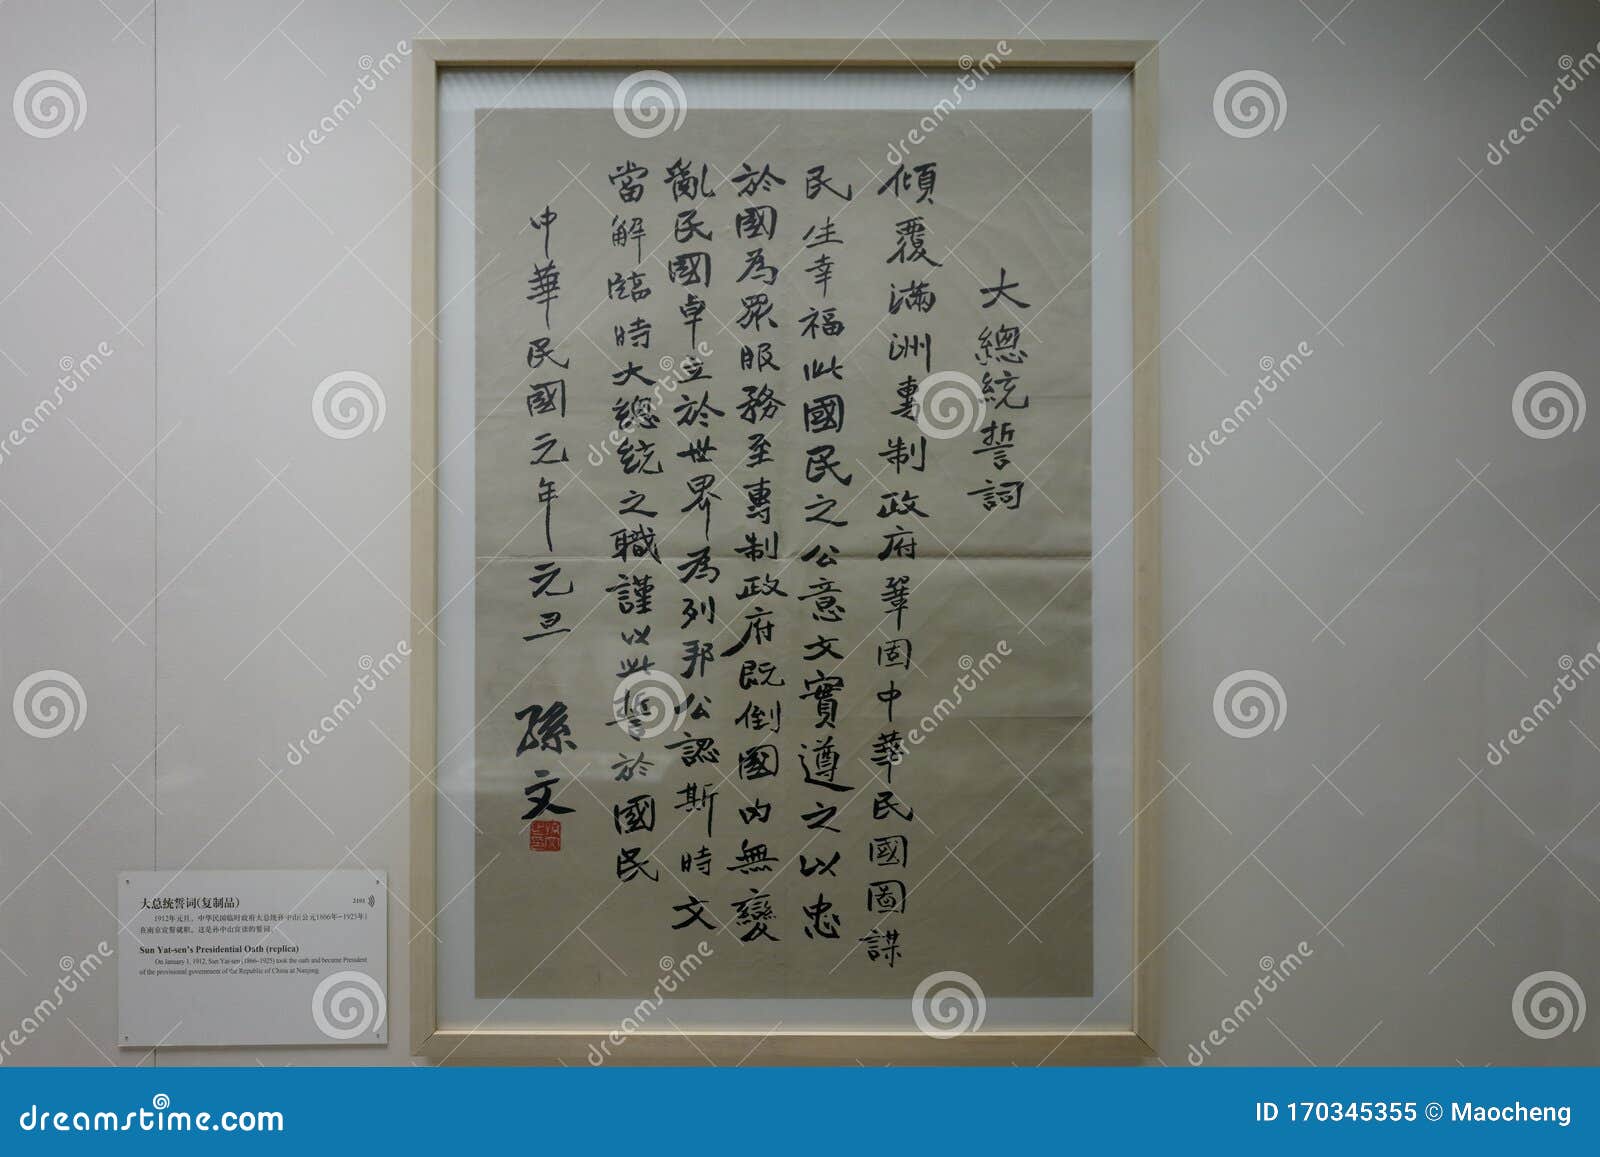 大總統誓詞
傾覆滿洲專制政府鞏固中華民國圖謀
民生幸福此國民之公意文實遵之以忠
於國為眾服務至專制政府既倒國內無變
亂民國卓立於世界為列邦公認斯時文
當解臨時大總統之職謹以此誓於國民
中華民國元年元旦
孫文
大总统誓词(复制品)
2101
1912年元旦，中华民国临时政府大总统孙中山(公元1866年-1925年)
在南京宣誓就职。这是孙中山宣读的誓词。
Sun Yat-sen's Presidential Oath (replica)
On January 1, 1912, Sun Yat-sen (1866-1925) took the oath and became President
of the provisional government of the Republic of China at Nanjing.
dreamstime.com
ID 170345355 © Maocheng